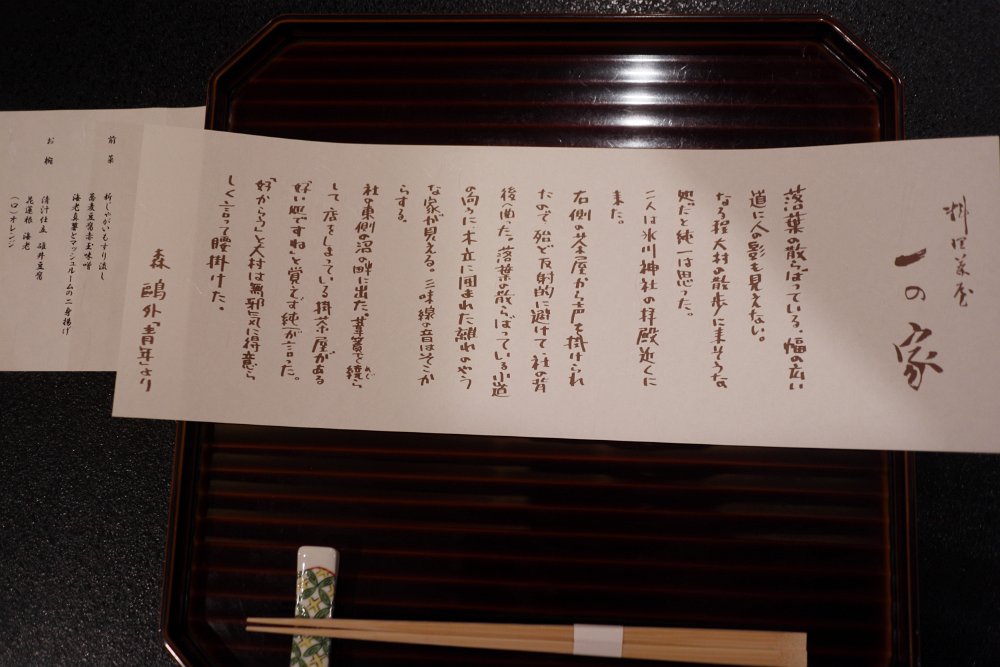 料理茶屋
一の家
落葉の散らばっている、幅の広い
道に人の影も見えない。
なる程大村の散歩に来そうな
処だと純一は思った。
二人は氷川神社の拝殿近くに
来た。
右側の茶屋から声を掛けられ
たので殆ど反射的に避けて、社の背
後へ曲った。落葉の散らばっている小道
の向うに木立に囲まれた離れのよう
な家が見える。三味線の音はそこか
らする。
社の東側の沼の畔に出た。葦簀を繞ら
して店をしまっている掛茶屋がある
「好い処ですね」と覚えず純一が言った。
「好かろう」と大村は無邪気に得意ら
しく言って腰掛けた。
森鷗外「青年」より
前菜
新じゃがいもすり流し
蕎麦豆腐赤玉味噌
海老真薯とマッシュルームの二身揚げ
お椀
清汁仕立 碓井豆腐
花蓮根 海老
(口)オレンジ